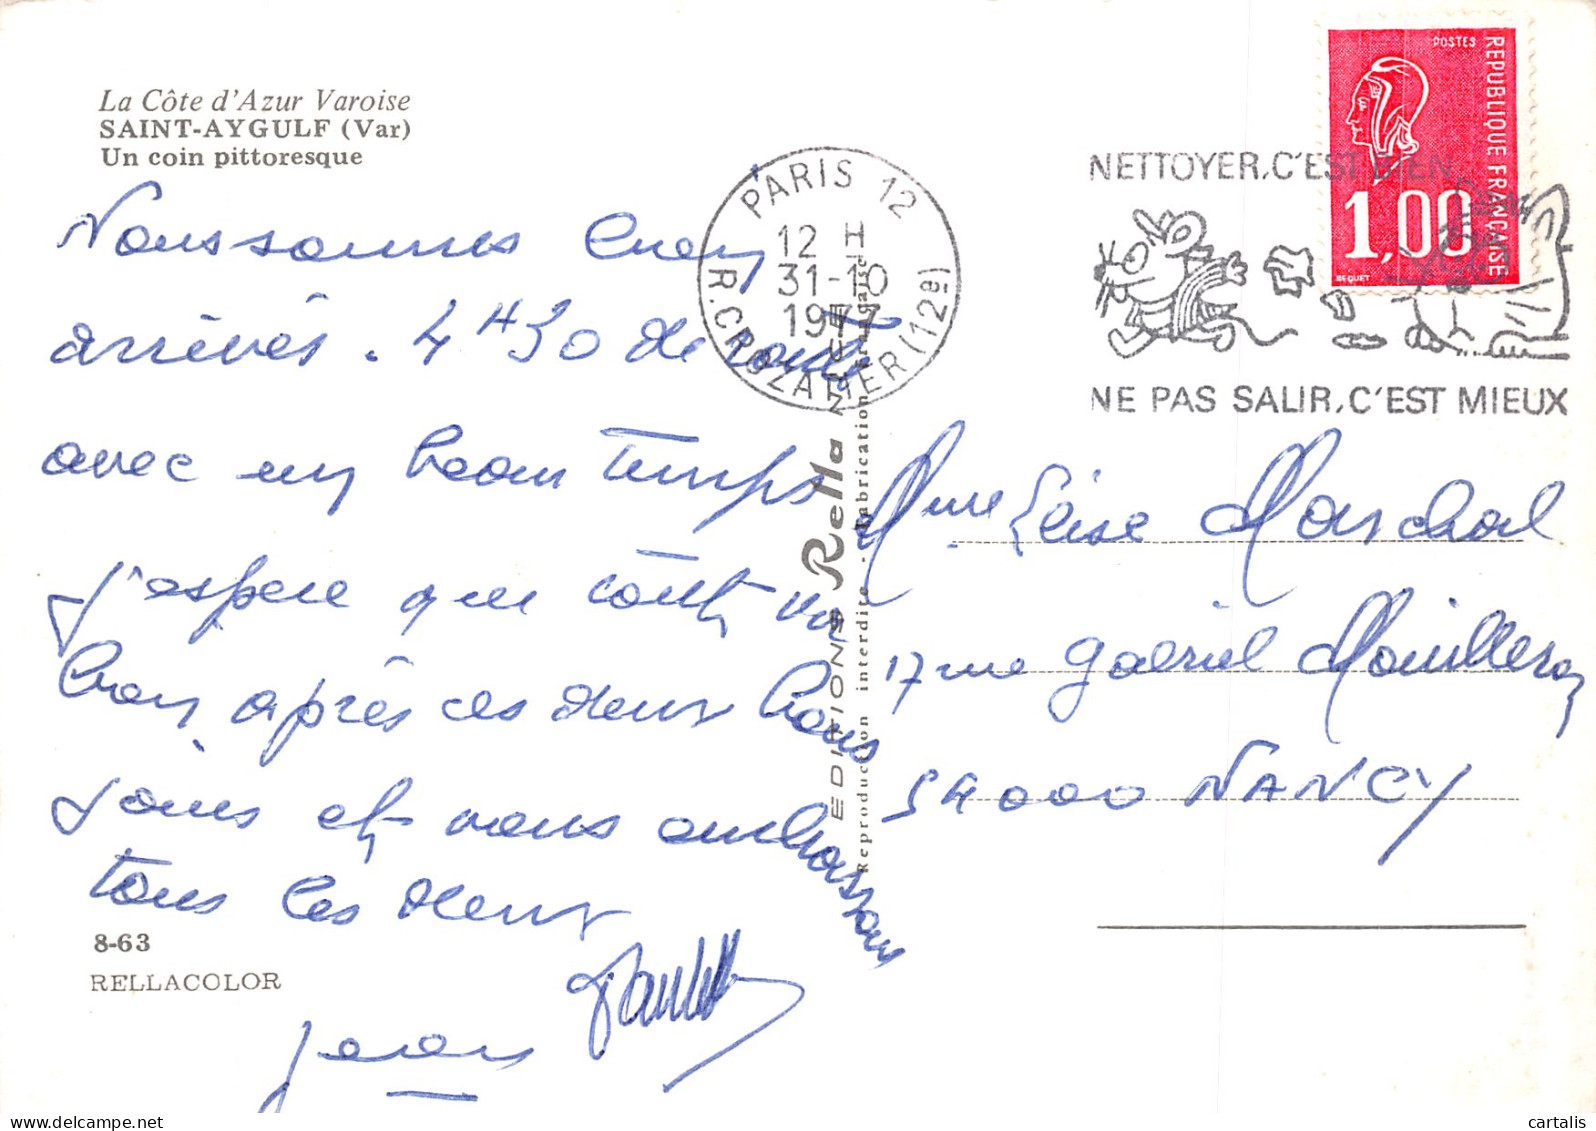 La Côte d'Azur Varoise
SAINT-AYGULF (Var)
Un coin pittoresque
Nous sommes bien
arrivés. 4H30 de route
avec un beau temps
j'espère que tout va
bien après ces deux bons
jours et vous embrassons
tous les deux
8-63
RELLACOLOR
Jean
Paulette
PARIS 12
12 H
31-10
1977
R. CROZATIER (12e)
EDITIONS Rella NICE
Reproduction interdite - Fabrication Française
NETTOYER, C'EST BIEN,
NE PAS SALIR, C'EST MIEUX
POSTES
REPUBLIQUE FRANÇAISE
1,00
BEQUET
Mme Marchal
17 rue Gabriel Mouilleron
54000 NANCY
delcampe.net
cartalis